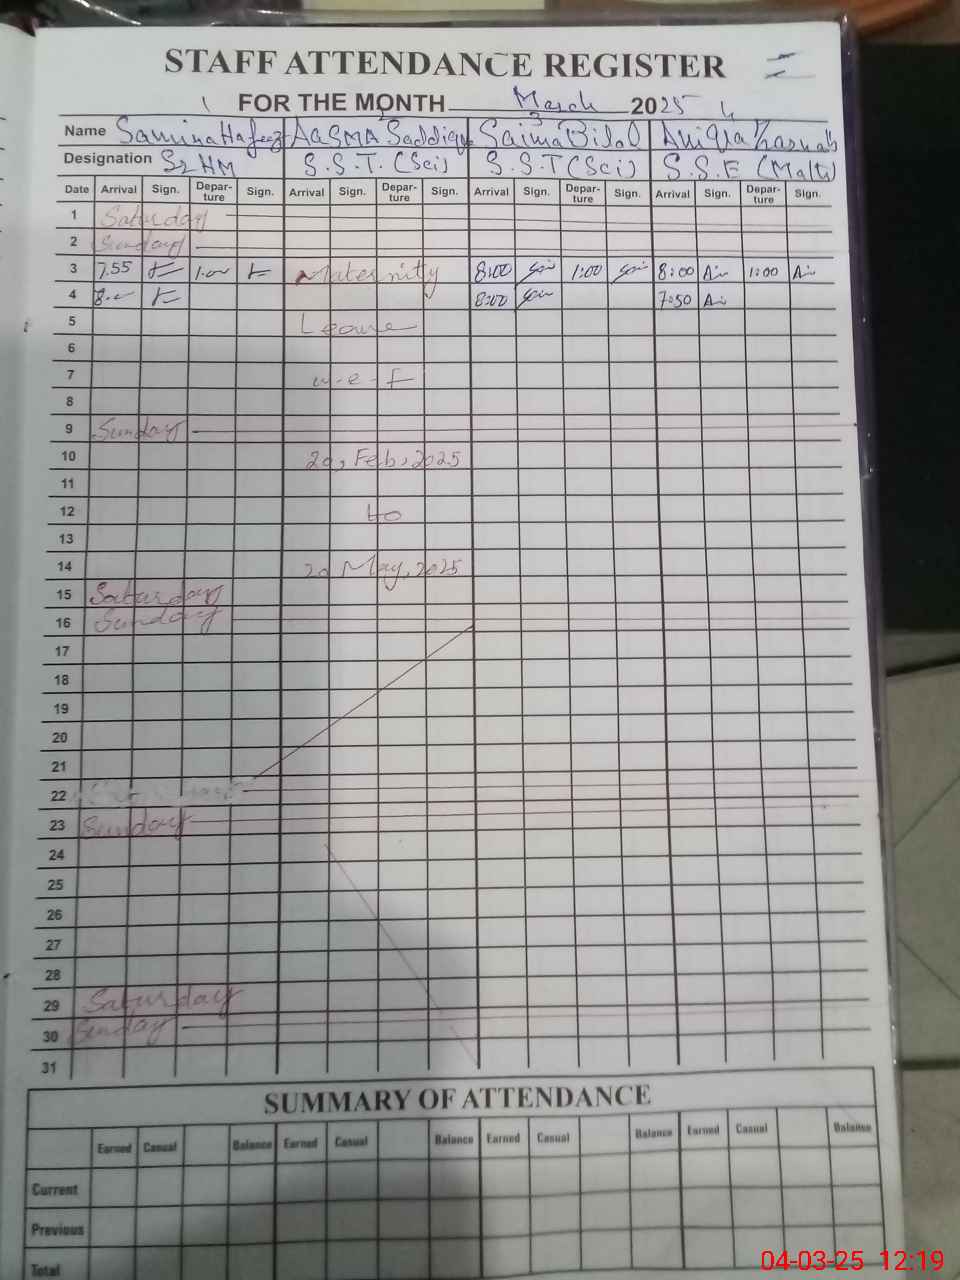 STAFF ATTENDANCE REGISTER
FOR THE MONTH March 2025
1 2 3 4
Name Samina Hafeez AASMA Saddiqa Saima Bilal Aniqa Zarnab
Designation Sr HM S.S.T. (Sci) S.S.T (Sci) S.S.E (Math)
Date Arrival Sign. Depar-ture Sign. Arrival Sign. Depar-ture Sign. Arrival Sign. Depar-ture Sign. Arrival Sign. Depar-ture Sign.
1 Saturday
2 Sunday
3 7.55 1.00 Maternity 8:00 1:00 8:00 1:00
4 8.00 8:00 7:50
5 Leave
6
7 w-e-f
8
9 Sunday
10 20, Feb, 2025
11
12 to
13
14 20 May, 2025
15 Saturday
16 Sunday
17
18
19
20
21
22
23 Sunday
24
25
26
27
28
29 Saturday
30 Sunday
31
SUMMARY OF ATTENDANCE
Earned Casual Balance Earned Casual Balance Earned Casual Balance Earned Casual Balance
Current
Previous
Total
04-03-25 12:19